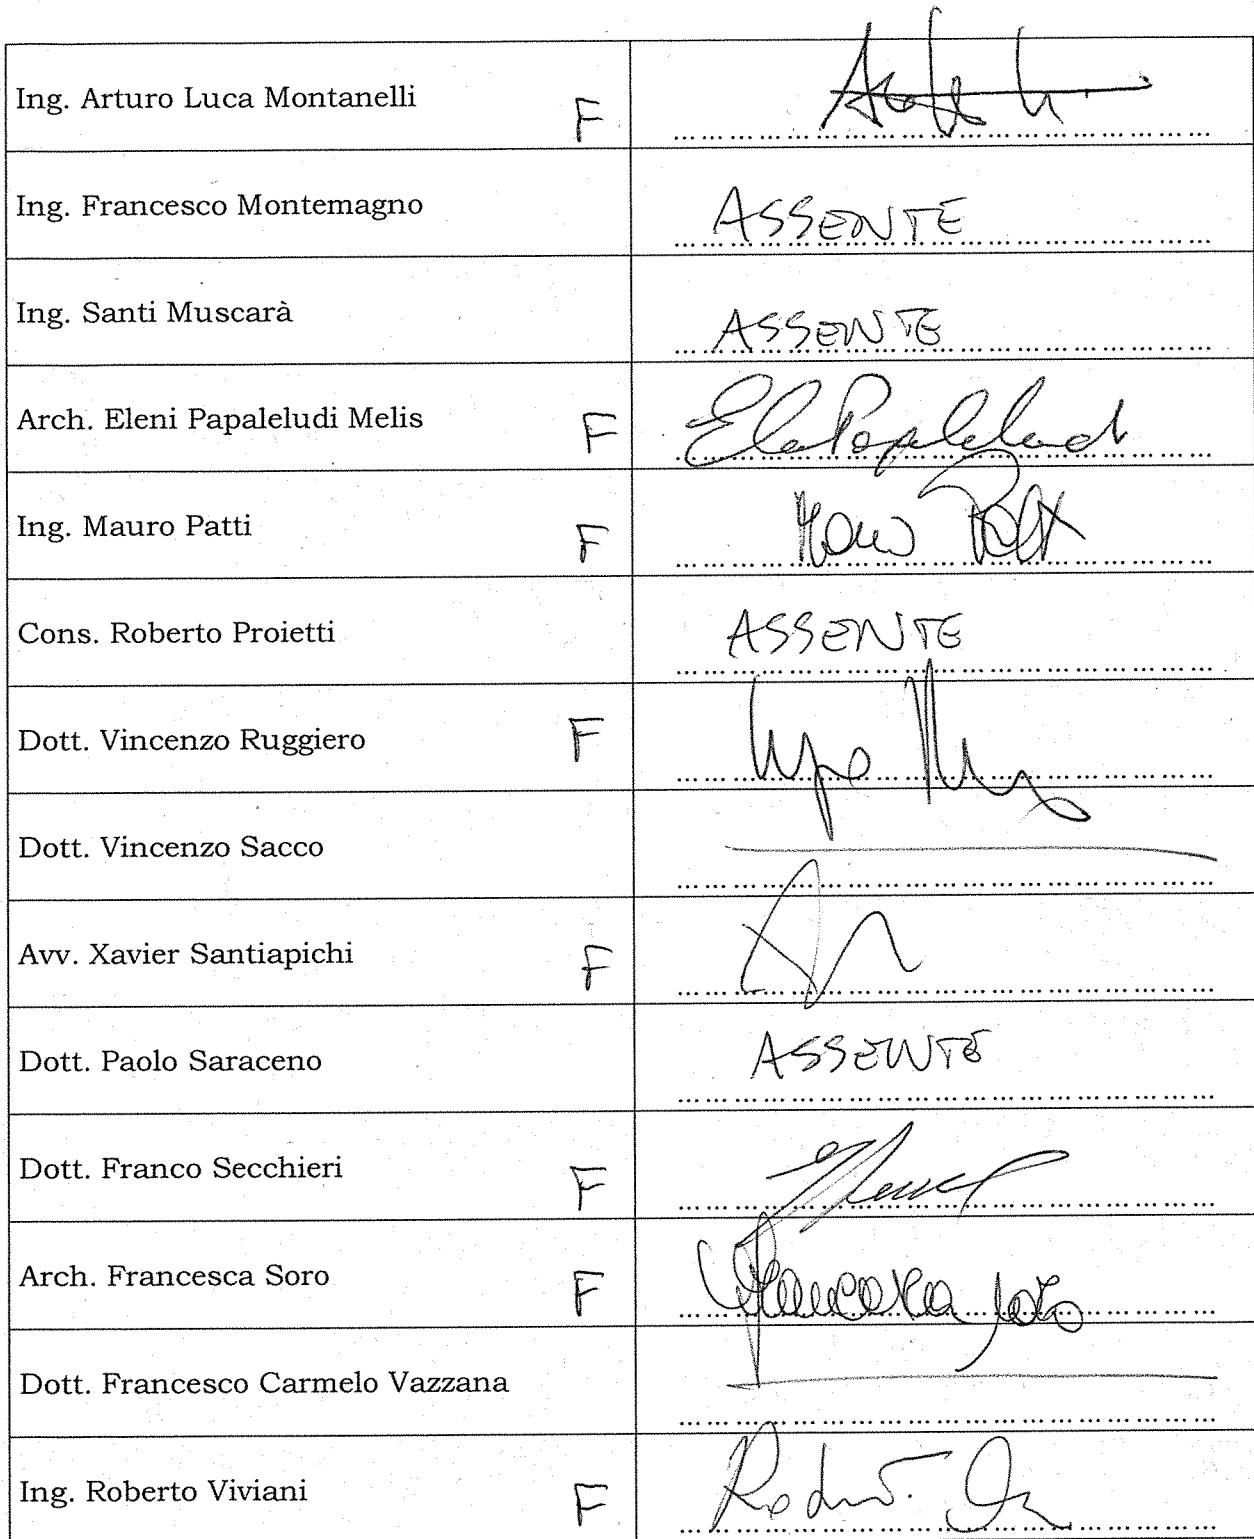 Ing. Arturo Luca Montanelli F
Ing. Francesco Montemagno ASSENTE
Ing. Santi Muscarà ASSENTE
Arch. Eleni Papaleludi Melis F
Ing. Mauro Patti F
Cons. Roberto Proietti ASSENTE
Dott. Vincenzo Ruggiero F
Dott. Vincenzo Sacco
Avv. Xavier Santiapichi F
Dott. Paolo Saraceno ASSENTE
Dott. Franco Secchieri F
Arch. Francesca Soro F Francesca Soro
Dott. Francesco Carmelo Vazzana
Ing. Roberto Viviani F